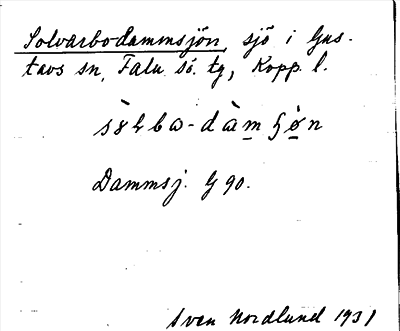 Solvarbo-dammsjön, sjö i Gus-
tavs sn, Falu sö. tg, Kopp. l.
Dammsj. G 90.
Sven Nordlund 1931